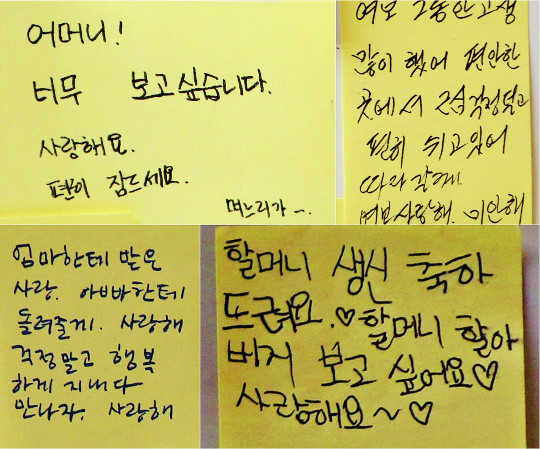 어머니!
너무 보고싶습니다.
사랑해요.
편이 잠드세요.
며느리가~.
여보 그동안고생
많이 했어 편안한
곳에서 근심걱정덜고
편히 쉬고있어
따라갈께.
여보사랑해. 미안해
엄마한테 받은
사랑. 아빠한테
돌려줄께. 사랑해
걱정말고 행복
하게 지내다
만나자. 사랑해
할머니 생신 축하
♡할머니 할아
버지 보고 싶어요♡
사랑해요~♡